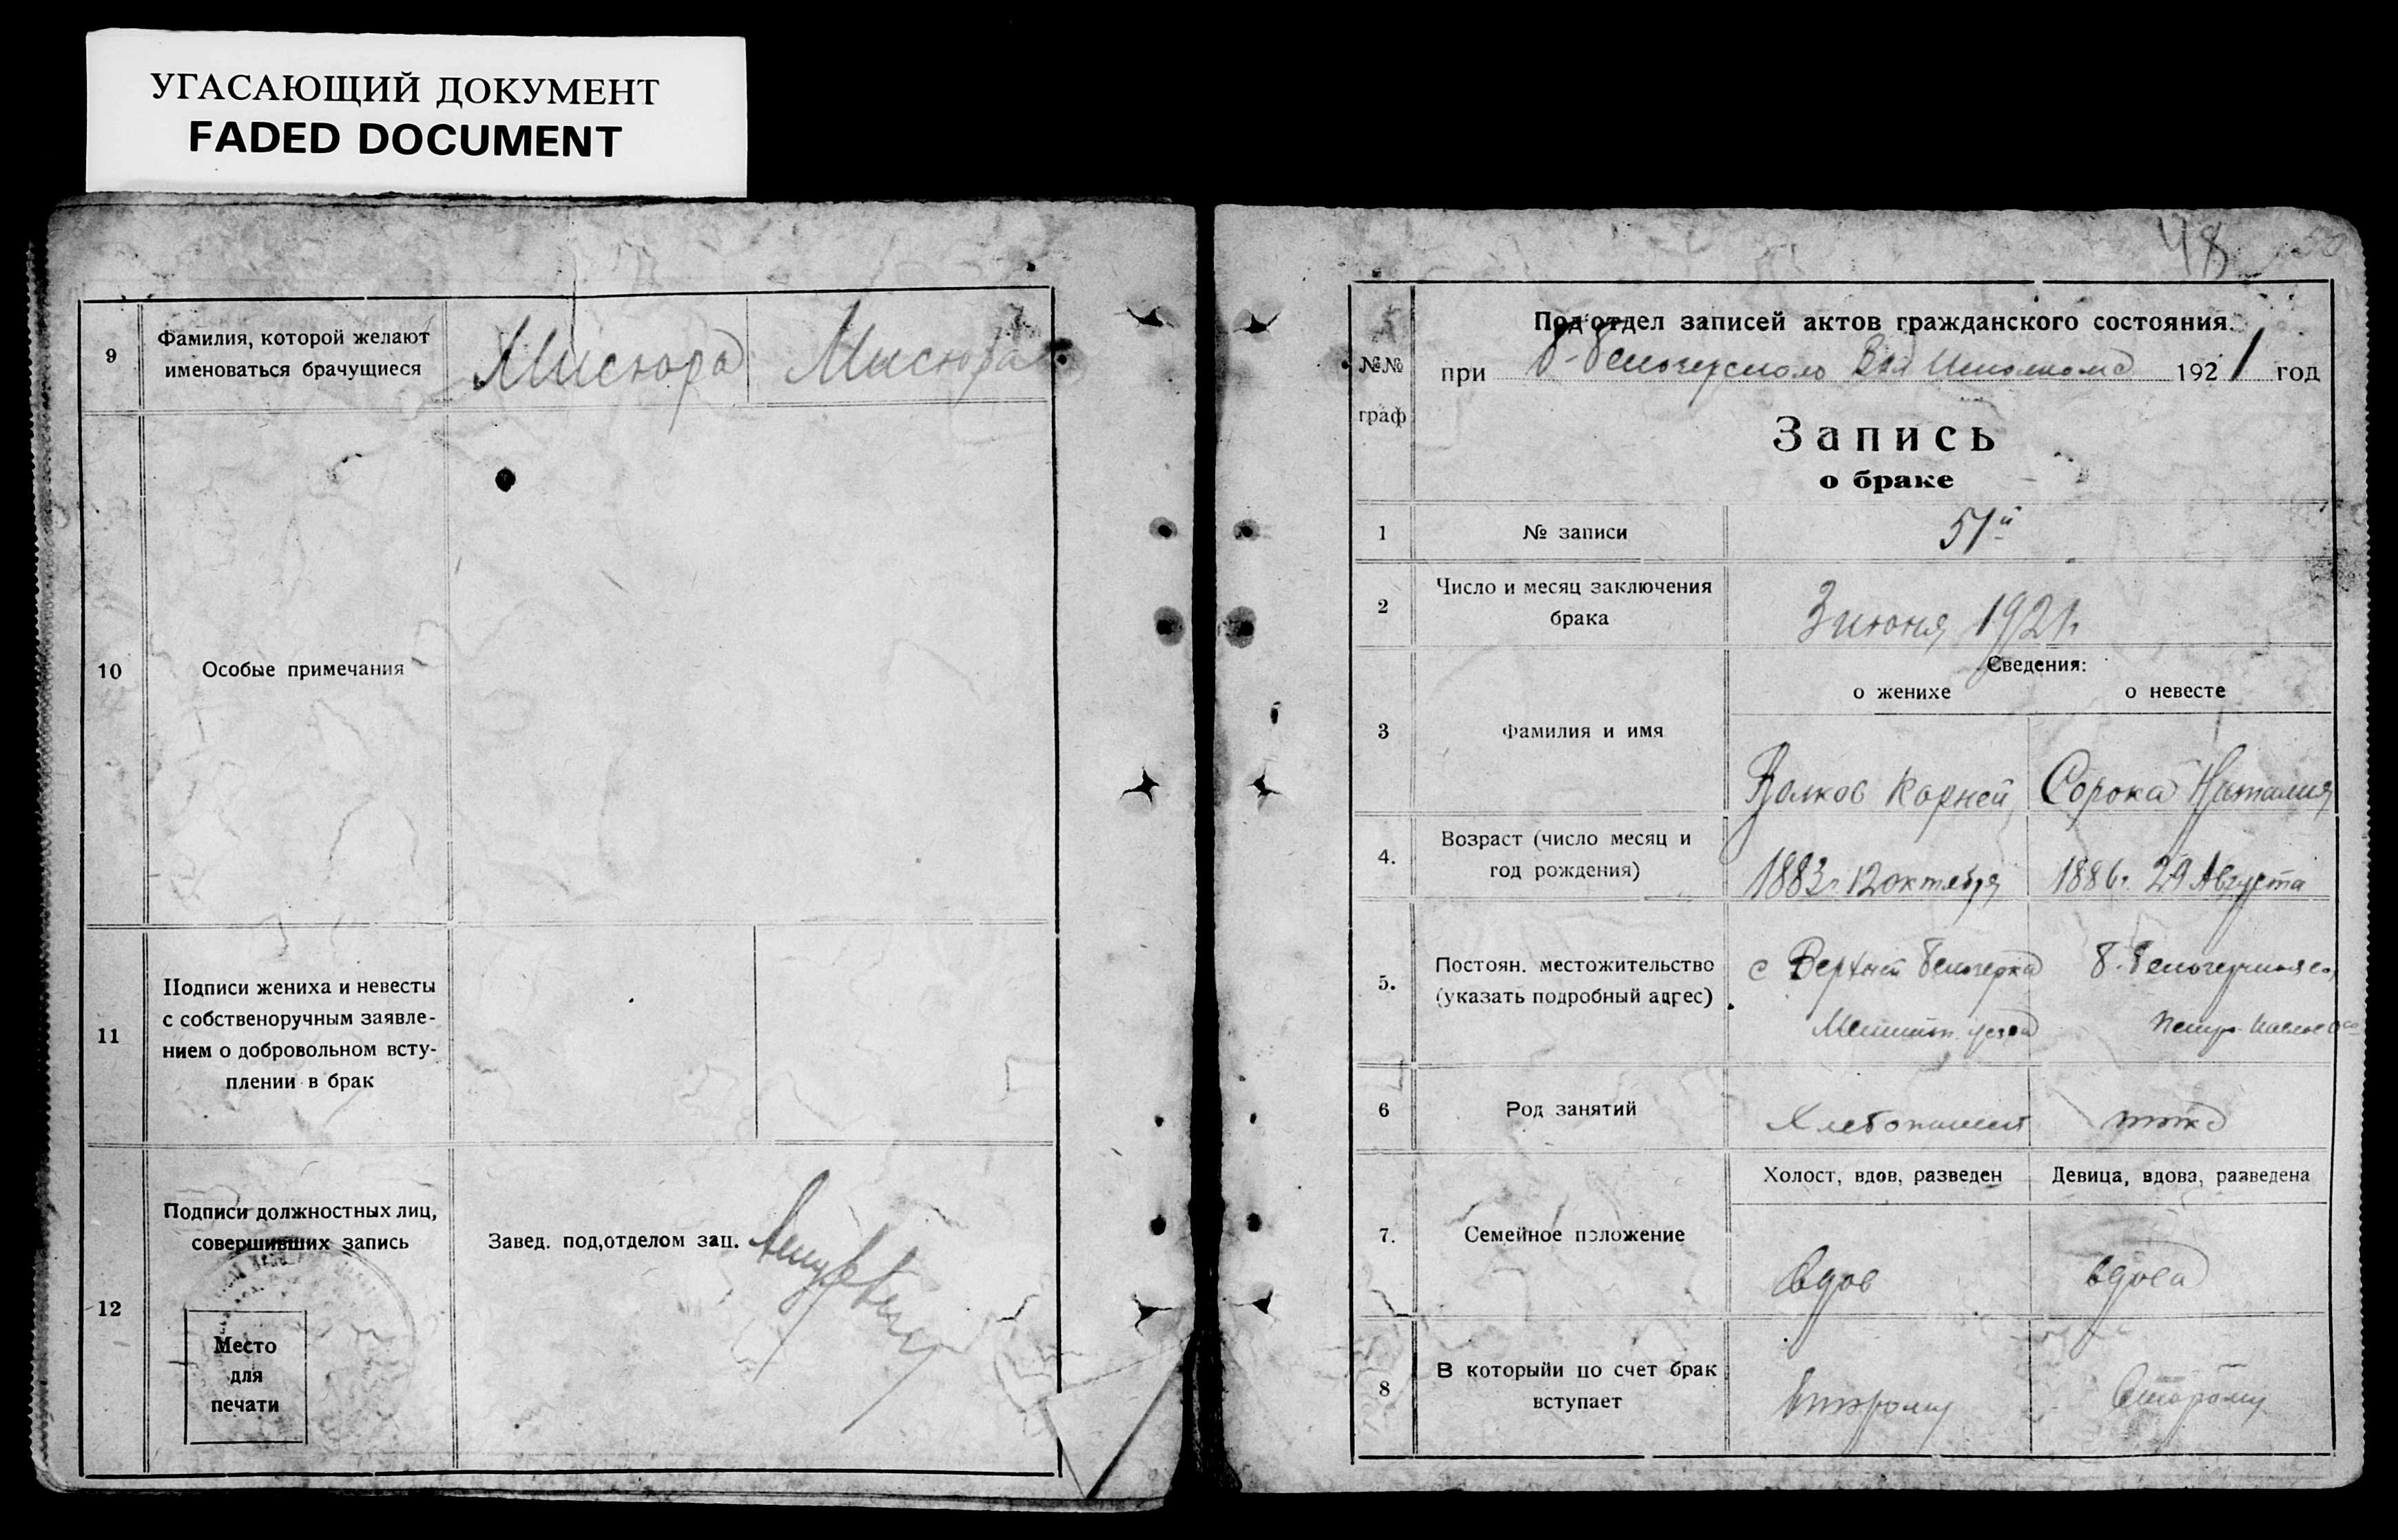 УГАСАЮЩИЙ ДОКУМЕНТ
FADED DOCUMENT
9
Фамилия, которой желают
именоваться брачущиеся
Мисюра
Мисюра
10
Особые примечания
11
Подписи жениха и невесты
с собственоручным заявле-
нием о добровольном всту-
плении в брак
12
Подписи должностных лиц,
совершивших запись
Место
для
печати
Завед. под,отделом зап.
48
50
№№
граф
Под'отдел записей актов гражданского состояния.
при В-Белозерского Вол Исполкома 1921 год
Запись
о браке
1
№ записи
51й
2
Число и месяц заключения
брака
3 июня 1921г
Сведения:
о женихе
о невесте
3
Фамилия и имя
Волков Корней
Сорока Наталия
4.
Возраст (число месяц и
год рождения)
1883г. 12 октября
1886г. 29 Августа
5.
Постоян. местожительство
(указать подробный адрес)
с Верхней Белозерка
Мелитоп. уезда
6
Род занятий
Хлебопашец
тоже
7.
Семейное положение
Холост, вдов, разведен
Девица, вдова, разведена
вдов
вдова
8
В которыйи по счет брак
вступает
Второму
Второму